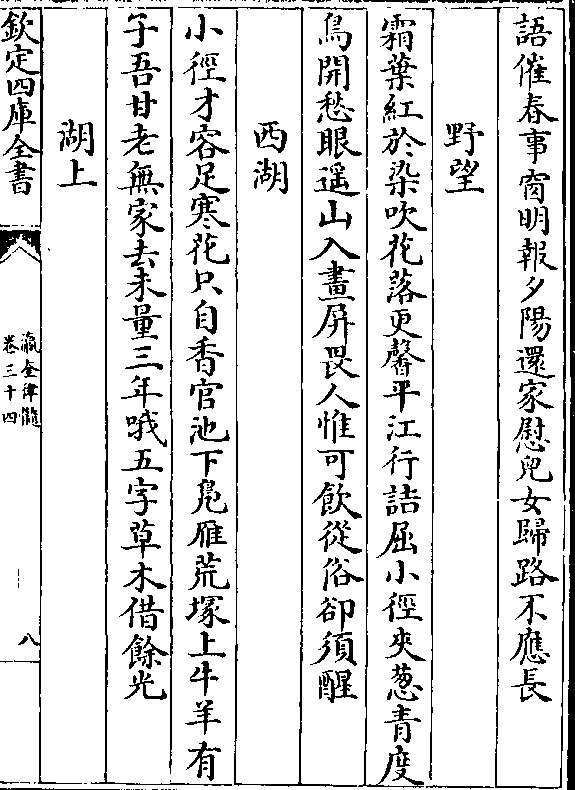 語催春事窗明報夕陽還家慰兒女歸路不應長
野望
霜葉紅於染吹花落更馨平江行詰屈小徑夾蔥青度
鳥開愁眼遥山入畫屏畏人惟可飲從俗卻須醒
西湖
小徑才容足寒花只自香官池下鳧雁荒塚上牛羊有
子吾甘老無家去未量三年哦五字草木借餘光
湖上
欽定四庫全書
瀛奎律髓
卷三十四
八